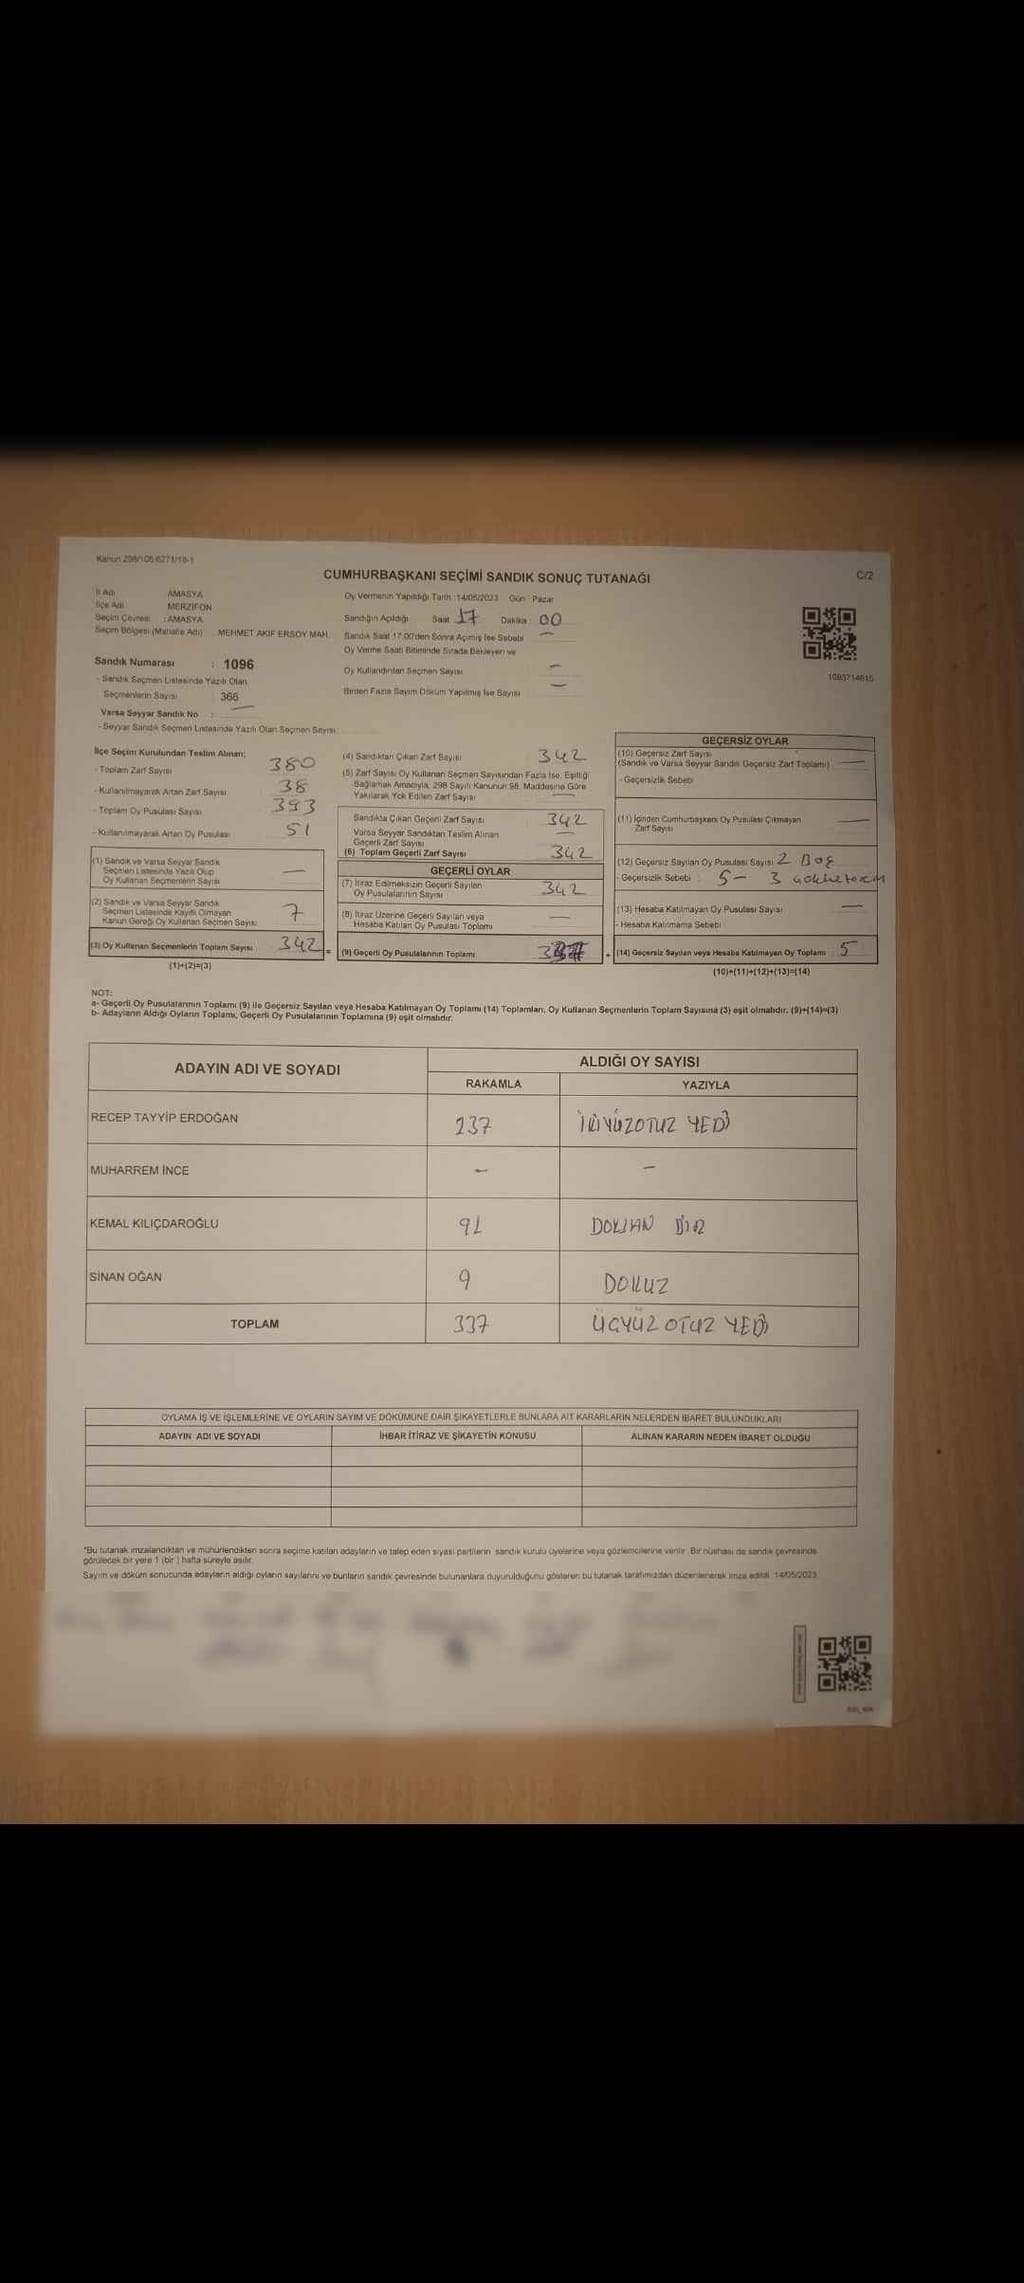 Kanun 298/105 6271/18-1
CUMHURBAŞKANI SEÇİMİ SANDIK SONUÇ TUTANAĞI
C/2
İl Adı AMASYA
İlçe Adı MERZİFON
Seçim Çevresi : AMASYA
Seçim Bölgesi (Mahalle Adı) : MEHMET AKİF ERSOY MAH.
Oy Vermenin Yapıldığı Tarih :14/05/2023 Gün : Pazar
Sandığın Açıldığı Saat 17 Dakika : 00
Sandık Saat 17:00'den Sonra Açılmış İse Sebebi —
Oy Verme Saati Bitiminde Sırada Bekleyen ve
Oy Kullandırılan Seçmen Sayısı —
Birden Fazla Sayım Döküm Yapılmış İse Sayısı —
1093714615
Sandık Numarası : 1096
- Sandık Seçmen Listesinde Yazılı Olan
Seçmenlerin Sayısı 366
Varsa Seyyar Sandık No : —
- Seyyar Sandık Seçmen Listesinde Yazılı Olan Seçmen Sayısı:
İlçe Seçim Kurulundan Teslim Alınan;
- Toplam Zarf Sayısı 380
- Kullanılmayarak Artan Zarf Sayısı 38
- Toplam Oy Pusulası Sayısı 393
- Kullanılmayarak Artan Oy Pusulası 51
(1) Sandık ve Varsa Seyyar Sandık
Seçmen Listesinde Yazılı Olup
Oy Kullanan Seçmenlerin Sayısı —
(2) Sandık ve Varsa Seyyar Sandık
Seçmen Listesinde Kayıtlı Olmayan
Kanun Gereği Oy Kullanan Seçmen Sayısı 7
(3) Oy Kullanan Seçmenlerin Toplam Sayısı 342 =
(1)+(2)=(3)
(4) Sandıktan Çıkan Zarf Sayısı 342
(5) Zarf Sayısı Oy Kullanan Seçmen Sayısından Fazla İse, Eşitliği
Sağlamak Amacıyla, 298 Sayılı Kanunun 98. Maddesine Göre
Yakılarak Yok Edilen Zarf Sayısı —
Sandıkta Çıkan Geçerli Zarf Sayısı 342
Varsa Seyyar Sandıktan Teslim Alınan
Geçerli Zarf Sayısı —
(6) Toplam Geçerli Zarf Sayısı 342
GEÇERLİ OYLAR
(7) İtiraz Edilmeksizin Geçerli Sayılan
Oy Pusulalarının Sayısı 342
(8) İtiraz Üzerine Geçerli Sayılan veya
Hesaba Katılan Oy Pusulası Toplamı —
(9) Geçerli Oy Pusulalarının Toplamı +
GEÇERSİZ OYLAR
(10) Geçersiz Zarf Sayısı
(Sandık ve Varsa Seyyar Sandık Geçersiz Zarf Toplamı) —
- Geçersizlik Sebebi
(11) İçinden Cumhurbaşkanı Oy Pusulası Çıkmayan
Zarf Sayısı —
(12) Geçersiz Sayılan Oy Pusulası Sayısı 2 Boş
- Geçersizlik Sebebi : 5 - 3
(13) Hesaba Katılmayan Oy Pusulası Sayısı —
- Hesaba Katılmama Sebebi
(14) Geçersiz Sayılan veya Hesaba Katılmayan Oy Toplamı 5
(10)+(11)+(12)+(13)=(14)
NOT:
a- Geçerli Oy Pusulalarının Toplamı (9) ile Geçersiz Sayılan veya Hesaba Katılmayan Oy Toplamı (14) Toplamları, Oy Kullanan Seçmenlerin Toplam Sayısına (3) eşit olmalıdır. (9)+(14)=(3)
b- Adayların Aldığı Oyların Toplamı, Geçerli Oy Pusulalarının Toplamına (9) eşit olmalıdır.
ADAYIN ADI VE SOYADI
ALDIĞI OY SAYISI
RAKAMLA YAZIYLA
RECEP TAYYİP ERDOĞAN 237 İKİYÜZOTUZ YEDİ
MUHARREM İNCE — —
KEMAL KILIÇDAROĞLU 91 DOKSAN BİR
SİNAN OĞAN 9 DOKUZ
TOPLAM 337 ÜÇYÜZ OTUZ YEDİ
OYLAMA İŞ VE İŞLEMLERİNE VE OYLARIN SAYIM VE DÖKÜMÜNE DAİR ŞİKAYETLERLE BUNLARA AİT KARARLARIN NELERDEN İBARET BULUNDUKLARI
ADAYIN ADI VE SOYADI İHBAR İTİRAZ VE ŞİKAYETİN KONUSU ALINAN KARARIN NEDEN İBARET OLDUĞU
*Bu tutanak imzalandıktan ve mühürlendikten sonra seçime katılan adayların ve talep eden siyasi partilerin sandık kurulu üyelerine veya gözlemcilerine verilir. Bir nüshası da sandık çevresinde
görülecek bir yere 1 (bir ) hafta süreyle asılır.
Sayım ve döküm sonucunda adayların aldığı oyların sayılarını ve bunların sandık çevresinde bulunanlara duyurulduğunu gösteren bu tutanak tarafımızdan düzenlenerek imza edildi. 14/05/2023